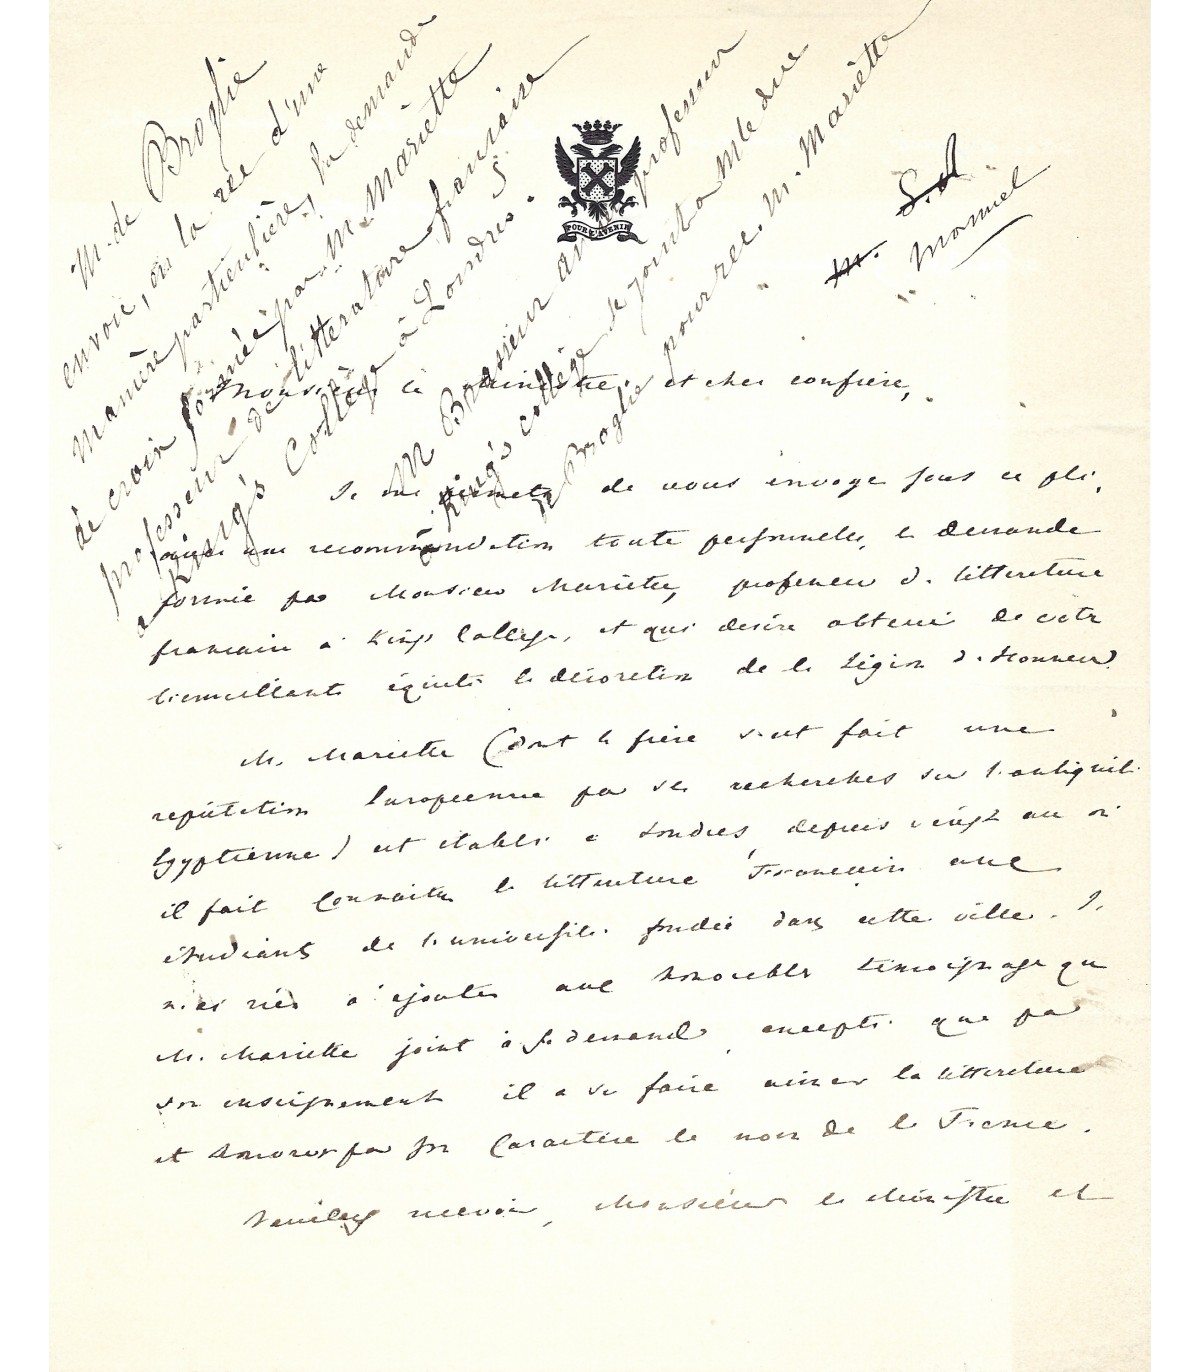 M. de Broglie
envoie, en la rec d'une
manière particulière, la demande
de croix formée par M. Mariette
professeur de littérature française
à King's Collège à Londres.
M Brassieur an professeur
King's collège se joint a M le duc
de Broglie pour rec. M. Mariette
POUR L'AVENIR
S. d
M. Manuel
Monsieur le Ministre et cher confrère,
Je me permets de vous envoyer sous ce pli,
avec une recommandation toute personnelle, la demande
formée par Monsieur Mariette, professeur de littérature
française à King's College, et qui désire obtenir de votre
bienveillante équité la décoration de la Légion d'Honneur.
M. Mariette (dont le frère s'est fait une
réputation Européenne par ses recherches sur l'antiquité
Egyptienne) est établi à Londres, depuis vingt ans où
il fait connaître la littérature Française aux
étudiants de l'université fondée dans cette ville. Je
n'ai rien à ajouter aux honorables témoignages que
M. Mariette joint à sa demande, excepté que par
son enseignement il a su faire aimer la littérature
et honorer par son caractère le nom de la France.
Veuillez recevoir, Monsieur le Ministre et